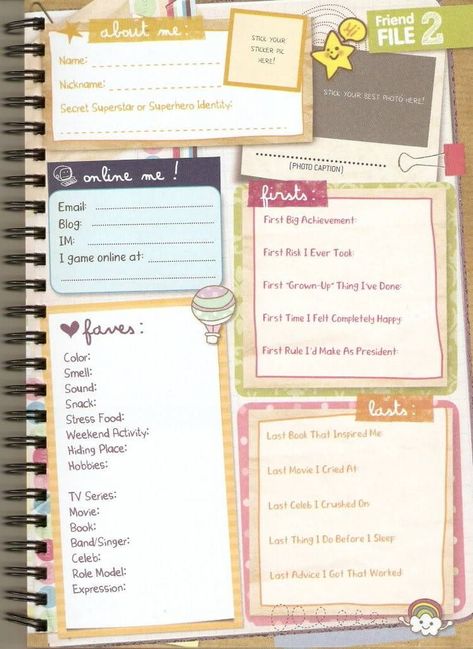 about me:
Name:
Nickname:
Secret Superstar or Superhero Identity:
STICK YOUR
STICKER PIC
HERE!
Hi
Friend
FILE 2
STICK YOUR BEST PHOTO HERE!
(PHOTO CAPTION)
online me!
Email:
Blog:
IM:
I game online at:
firsts:
First Big Achievement:
First Risk I Ever Took:
First "Grown-Up" Thing I've Done:
First Time I Felt Completely Happy:
First Rule I'd Make As President:
faves:
Color:
Smell:
Sound:
Snack:
Stress Food:
Weekend Activity:
Hiding Place:
Hobbies:
TV Series:
Movie:
Book:
Band/Singer:
Celeb:
Role Model:
Expression:
lasts:
Last Book That Inspired Me:
Last Movie I Cried At:
Last Celeb I Crushed On:
Last Thing I Do Before I Sleep:
Last Advice I Got That Worked: